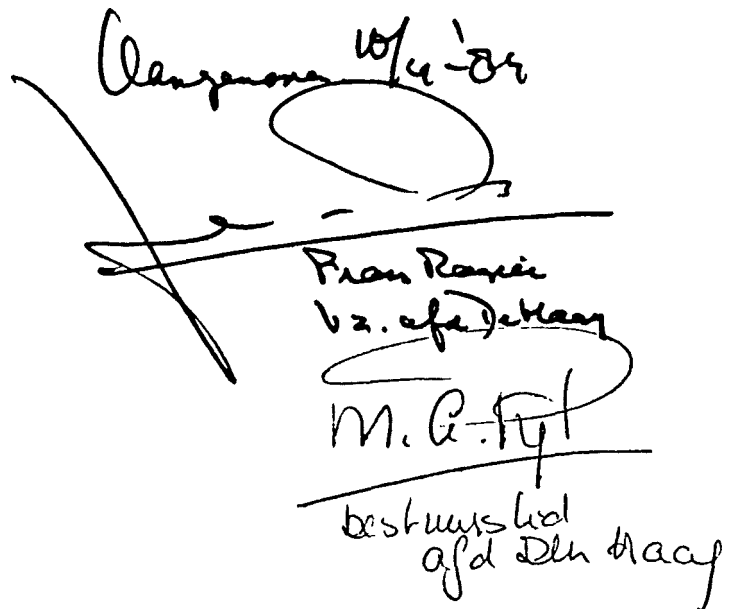 Aangenomen 10/4-'84
Frans Rogier
Vz. afd De Haag
M. G.
bestuurslid
afd Den Haag